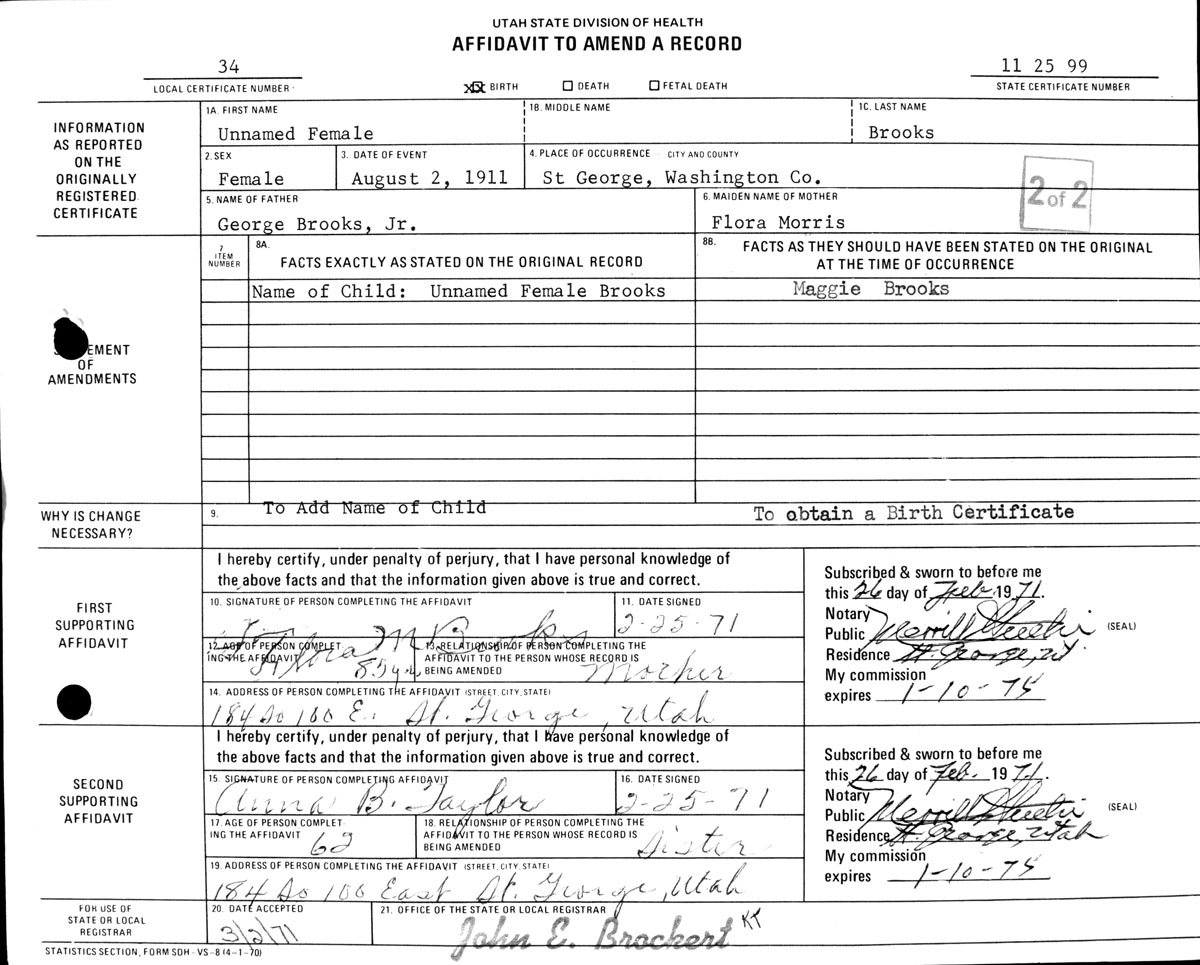 UTAH STATE DIVISION OF HEALTH
AFFIDAVIT TO AMEND A RECORD
34
LOCAL CERTIFICATE NUMBER
☒ BIRTH ☐ DEATH ☐ FETAL DEATH
11 25 99
STATE CERTIFICATE NUMBER
INFORMATION
AS REPORTED
ON THE
ORIGINALLY
REGISTERED
CERTIFICATE
1A. FIRST NAME 1B. MIDDLE NAME 1C. LAST NAME
Unnamed Female Brooks
2. SEX 3. DATE OF EVENT 4. PLACE OF OCCURRENCE - CITY AND COUNTY
Female August 2, 1911 St George, Washington Co.
2 of 2
5. NAME OF FATHER 6. MAIDEN NAME OF MOTHER
George Brooks, Jr. Flora Morris
7
ITEM
NUMBER
8A.
FACTS EXACTLY AS STATED ON THE ORIGINAL RECORD
8B. FACTS AS THEY SHOULD HAVE BEEN STATED ON THE ORIGINAL
AT THE TIME OF OCCURRENCE
Name of Child: Unnamed Female Brooks Maggie Brooks
EMENT
OF
AMENDMENTS
WHY IS CHANGE
NECESSARY?
9. To Add Name of Child To obtain a Birth Certificate
FIRST
SUPPORTING
AFFIDAVIT
I hereby certify, under penalty of perjury, that I have personal knowledge of
the above facts and that the information given above is true and correct.
10. SIGNATURE OF PERSON COMPLETING THE AFFIDAVIT 11. DATE SIGNED
Flora M Brooks 2-25-71
12. AGE OF PERSON COMPLET-
ING THE AFFIDAVIT 85 yrs
13. RELATIONSHIP OF PERSON COMPLETING THE
AFFIDAVIT TO THE PERSON WHOSE RECORD IS
BEING AMENDED Mother
14. ADDRESS OF PERSON COMPLETING THE AFFIDAVIT (STREET, CITY, STATE)
184 So 100 E. St. George, Utah
Subscribed & sworn to before me
this 26 day of Feb 1971.
Notary
Public Merrill (SEAL)
Residence St. George, Ut
My commission
expires 1-10-74
SECOND
SUPPORTING
AFFIDAVIT
I hereby certify, under penalty of perjury, that I have personal knowledge of
the above facts and that the information given above is true and correct.
15. SIGNATURE OF PERSON COMPLETING AFFIDAVIT 16. DATE SIGNED
Anna B. Taylor 2-25-71
17. AGE OF PERSON COMPLET-
ING THE AFFIDAVIT 62
18. RELATIONSHIP OF PERSON COMPLETING THE
AFFIDAVIT TO THE PERSON WHOSE RECORD IS
BEING AMENDED Sister
19. ADDRESS OF PERSON COMPLETING THE AFFIDAVIT (STREET, CITY, STATE)
184 So 100 East St. George, Utah
Subscribed & sworn to before me
this 26 day of Feb. 1971.
Notary
Public Merrill (SEAL)
Residence St. George, Utah
My commission
expires 1-10-74
FOR USE OF
STATE OR LOCAL
REGISTRAR
20. DATE ACCEPTED 21. OFFICE OF THE STATE OR LOCAL REGISTRAR
3/2/71 John E. Brockert KT
STATISTICS SECTION, FORM SDH-VS-8 (4-1-70)